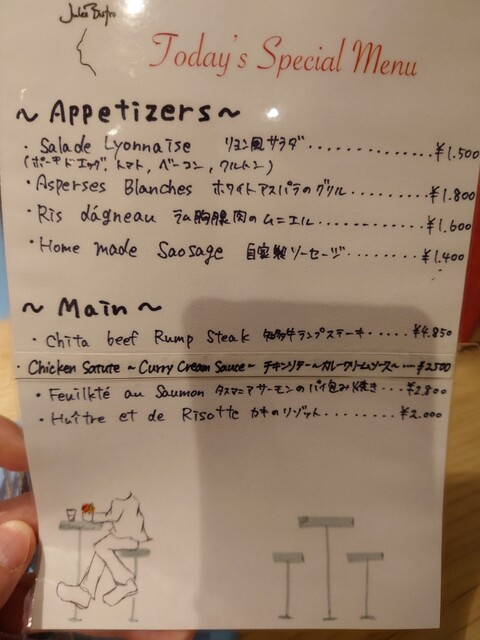 Jules Bistro
Today's Special Menu
~ Appetizers ~
・Salade Lyonnaise リヨン風サラダ..............¥1.500
(ポーチドエッグ, トマト, ベーコン, クルトン)
・Asperses Blanches ホワイトアスパラのグリル........¥1.800
・Ris dágneau ラム胸腺肉のムニエル............¥1.600
・Home made Saosage 自家製ソーセージ........¥1.400
~ Main ~
・Chita beef Rump Steak 知多牛ランプステーキ.....¥4.850
・Chicken Satute ~ Curry Cream Sauce ~ チキンソテー~カレークリームソース~....¥2500
・Feuilkté au Saumon タスマニアサーモンのパイ包み焼き...¥2.800
・Huître et de Risotte カキのリゾット.........¥2.000